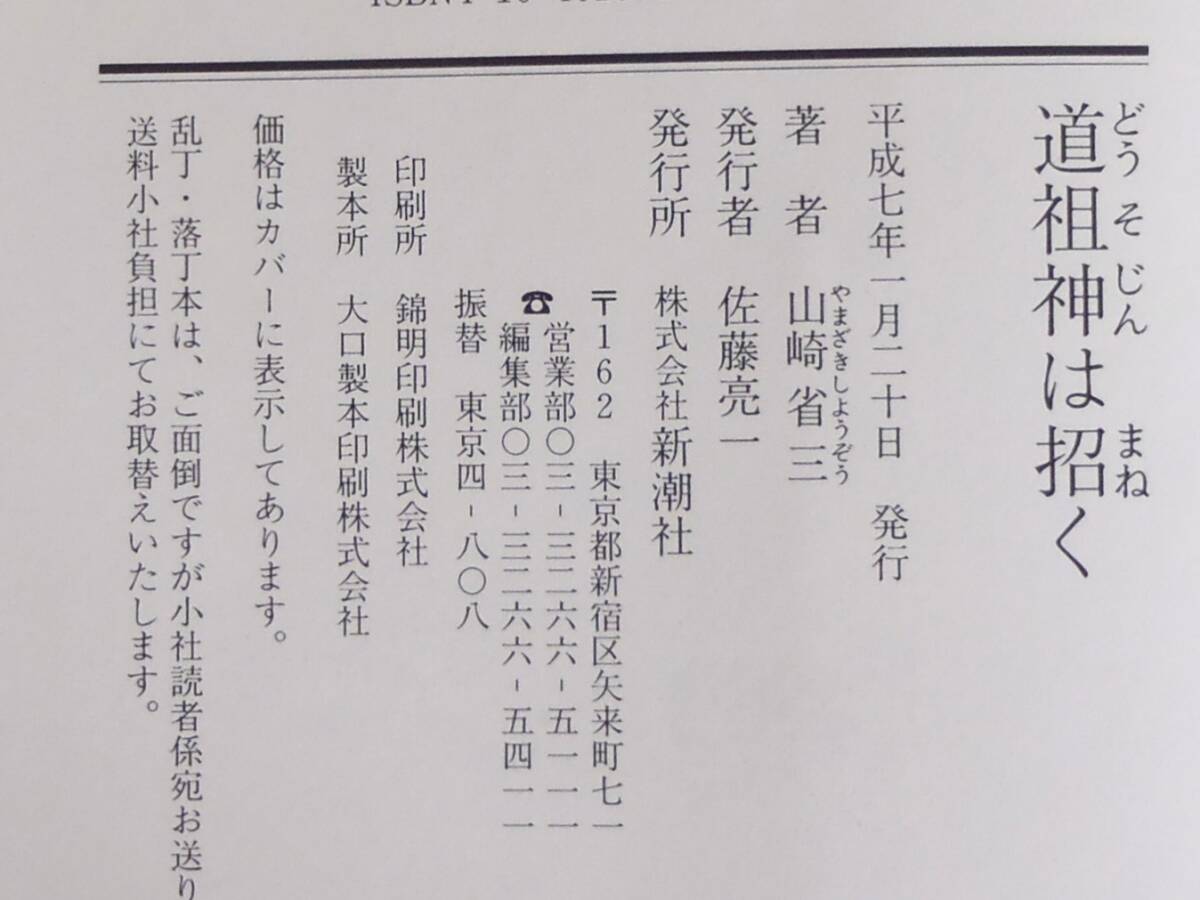 道祖神は招く
どうそじん まね
平成七年一月二十日 発行
著者 山崎省三
やまざきしようぞう
発行者 佐藤亮一
発行所 株式会社新潮社
〒162 東京都新宿区矢来町七一
☎営業部〇三-三二六六-五一一一
編集部〇三-三二六六-五四一一
振替 東京四-八〇八
印刷所 錦明印刷株式会社
製本所 大口製本印刷株式会社
価格はカバーに表示してあります。
乱丁・落丁本は、ご面倒ですが小社読者係宛お送り
送料小社負担にてお取替えいたします。